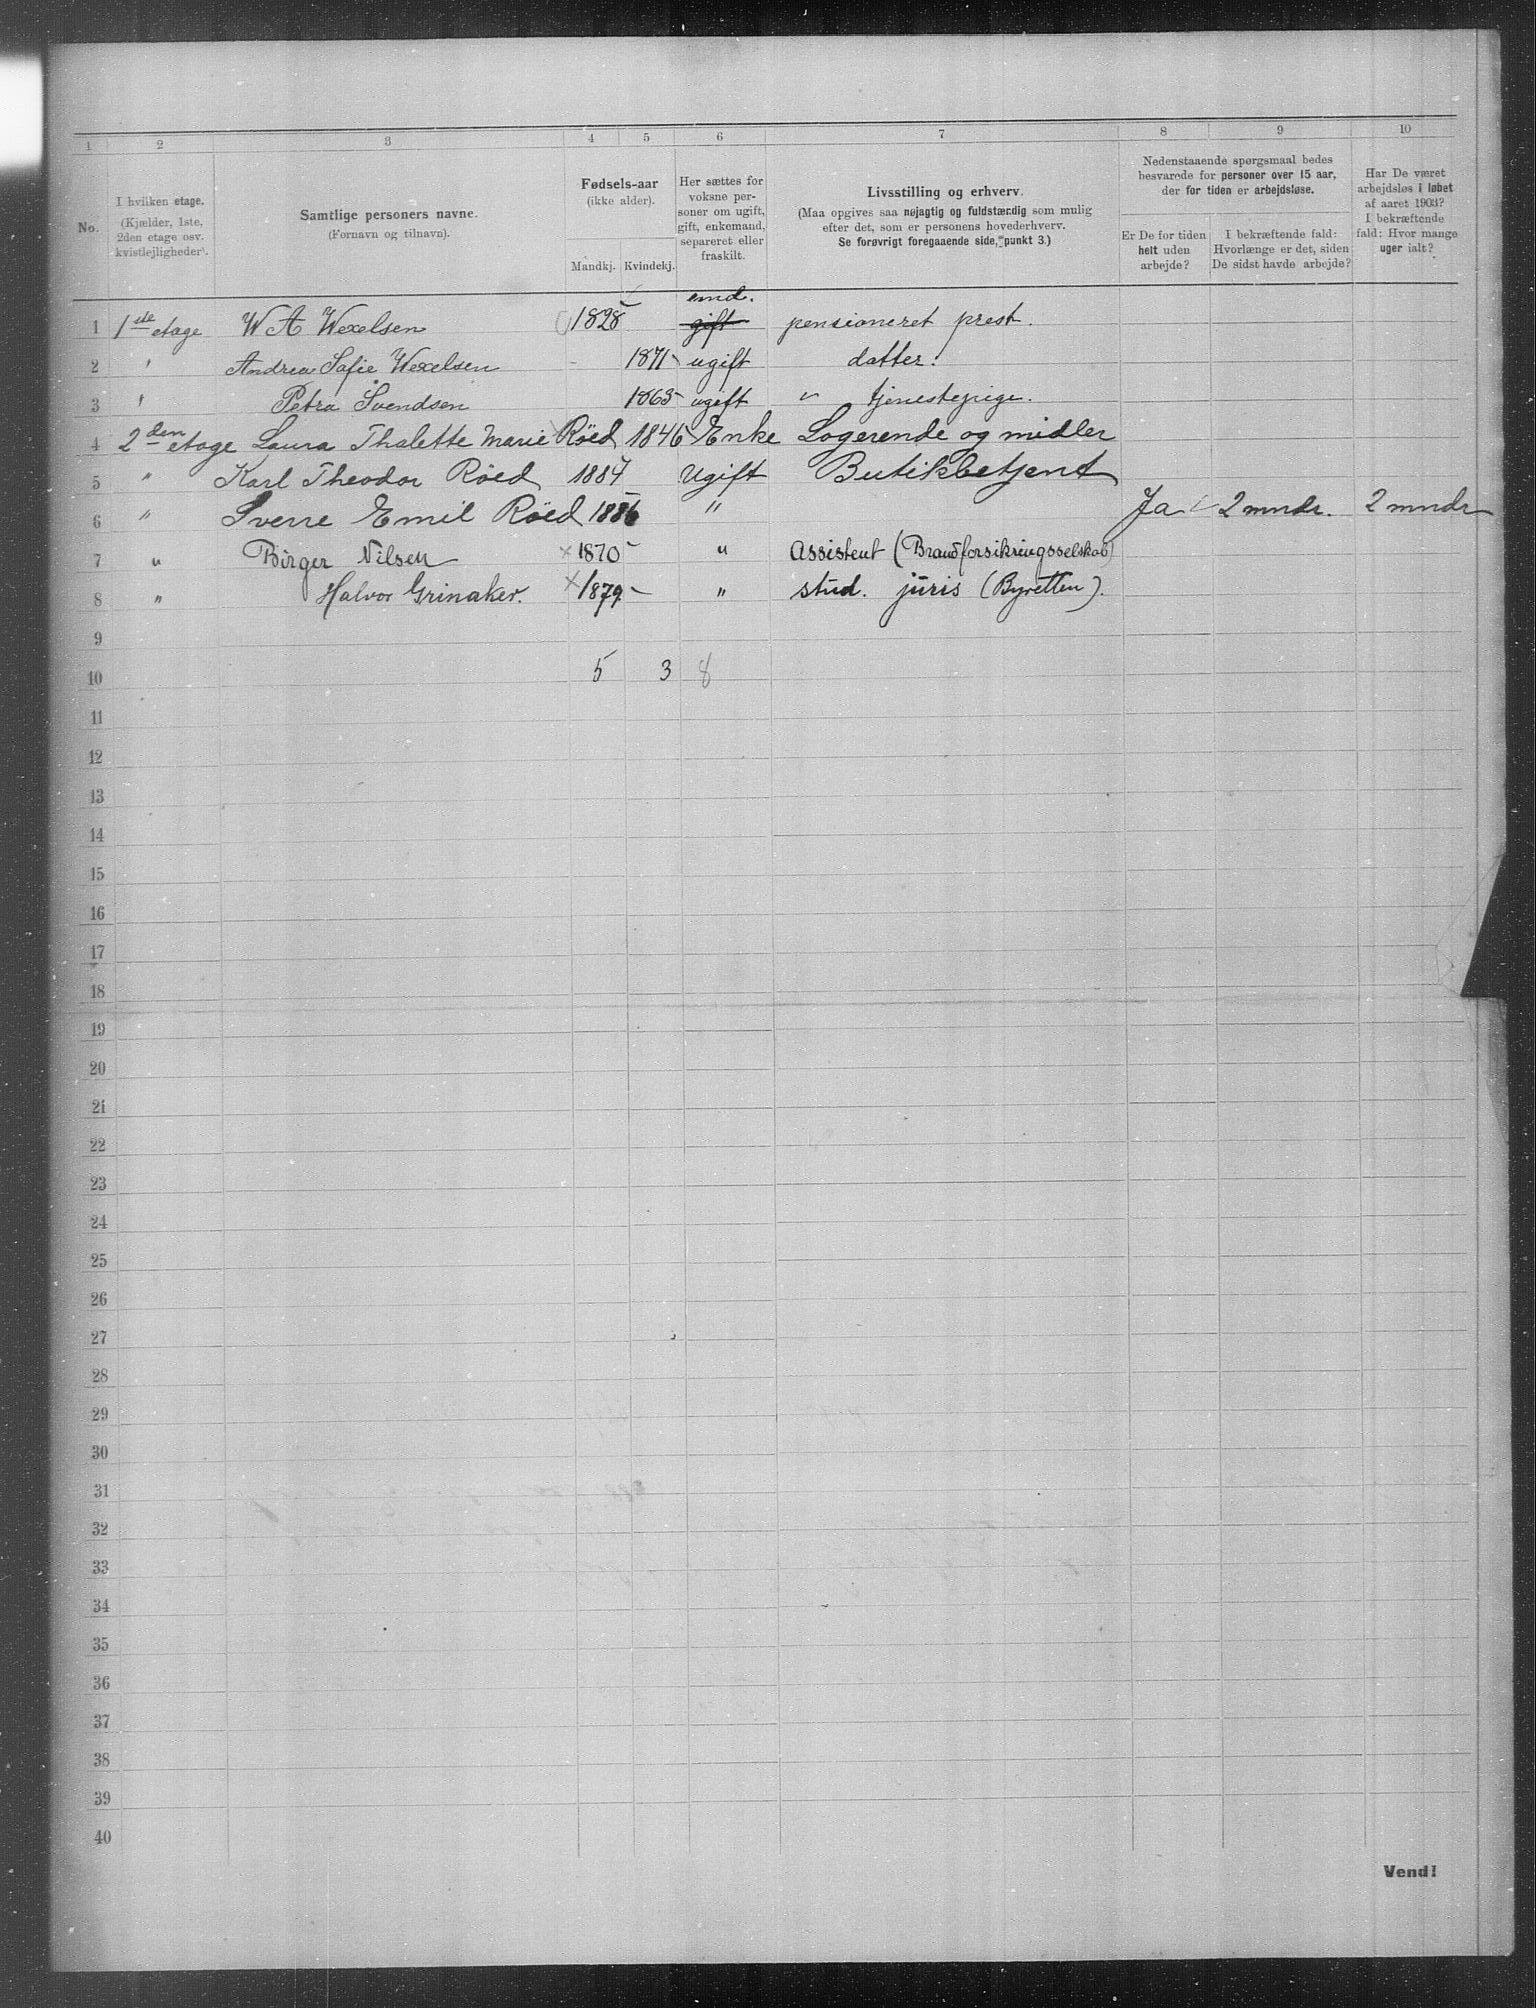 1 2 3 4 5 6 7 8 9 10
No.
I hvilken etage.
(Kjælder, 1ste,
2den etage osv.
kvistlejligheder).
Samtlige personers navne.
(Fornavn og tilnavn).
Fødsels-aar
(ikke alder).
Mandkj. Kvindekj.
Her sættes for
voksne per-
soner om ugift,
gift, enkemand,
separeret eller
fraskilt.
Livsstilling og erhverv.
(Maa opgives saa nøjagtig og fuldstændig som mulig
efter det, som er personens hovederhverv.
Se forøvrigt foregaaende side, punkt 3.)
Nedenstaaende spørgsmaal bedes
besvarede for personer over 15 aar,
der for tiden er arbejdsløse.
Er De for tiden
helt uden
arbejde?
I bekræftende fald:
Hvorlænge er det, siden
De sidst havde arbejde?
Har De været
arbejdsløs i løbet
af aaret 1903?
I bekræftende
fald: Hvor mange
uger ialt?
emd.
1 1ste etage W A Wexelsen 1828 gift pensioneret prest.
2 " Andrea Sofie Wexelsen - 1871 ugift datter.
3 " Petra Svendsen 1863 ugift " tjenestepige.
4 2den etage Laura Thalette Marie Røed 1846 Enke Logerende og midler
5 " Karl Theodor Røed 1884 Ugift Butikbetjent
6 " Sverre Emil Røed 1886 " Ja 2 mndr. 2 mndr
7 " Birger Nilsen × 1870 " Assistent (Brandforsikringsselskab)
8 " Halvor Grinaker. × 1879 " stud. juris (Byretten).
9
10 5 3 8
11
12
13
14
15
16
17
18
19
20
21
22
23
24
25
26
27
28
29
30
31
32
33
34
35
36
37
38
39
40
Vend!